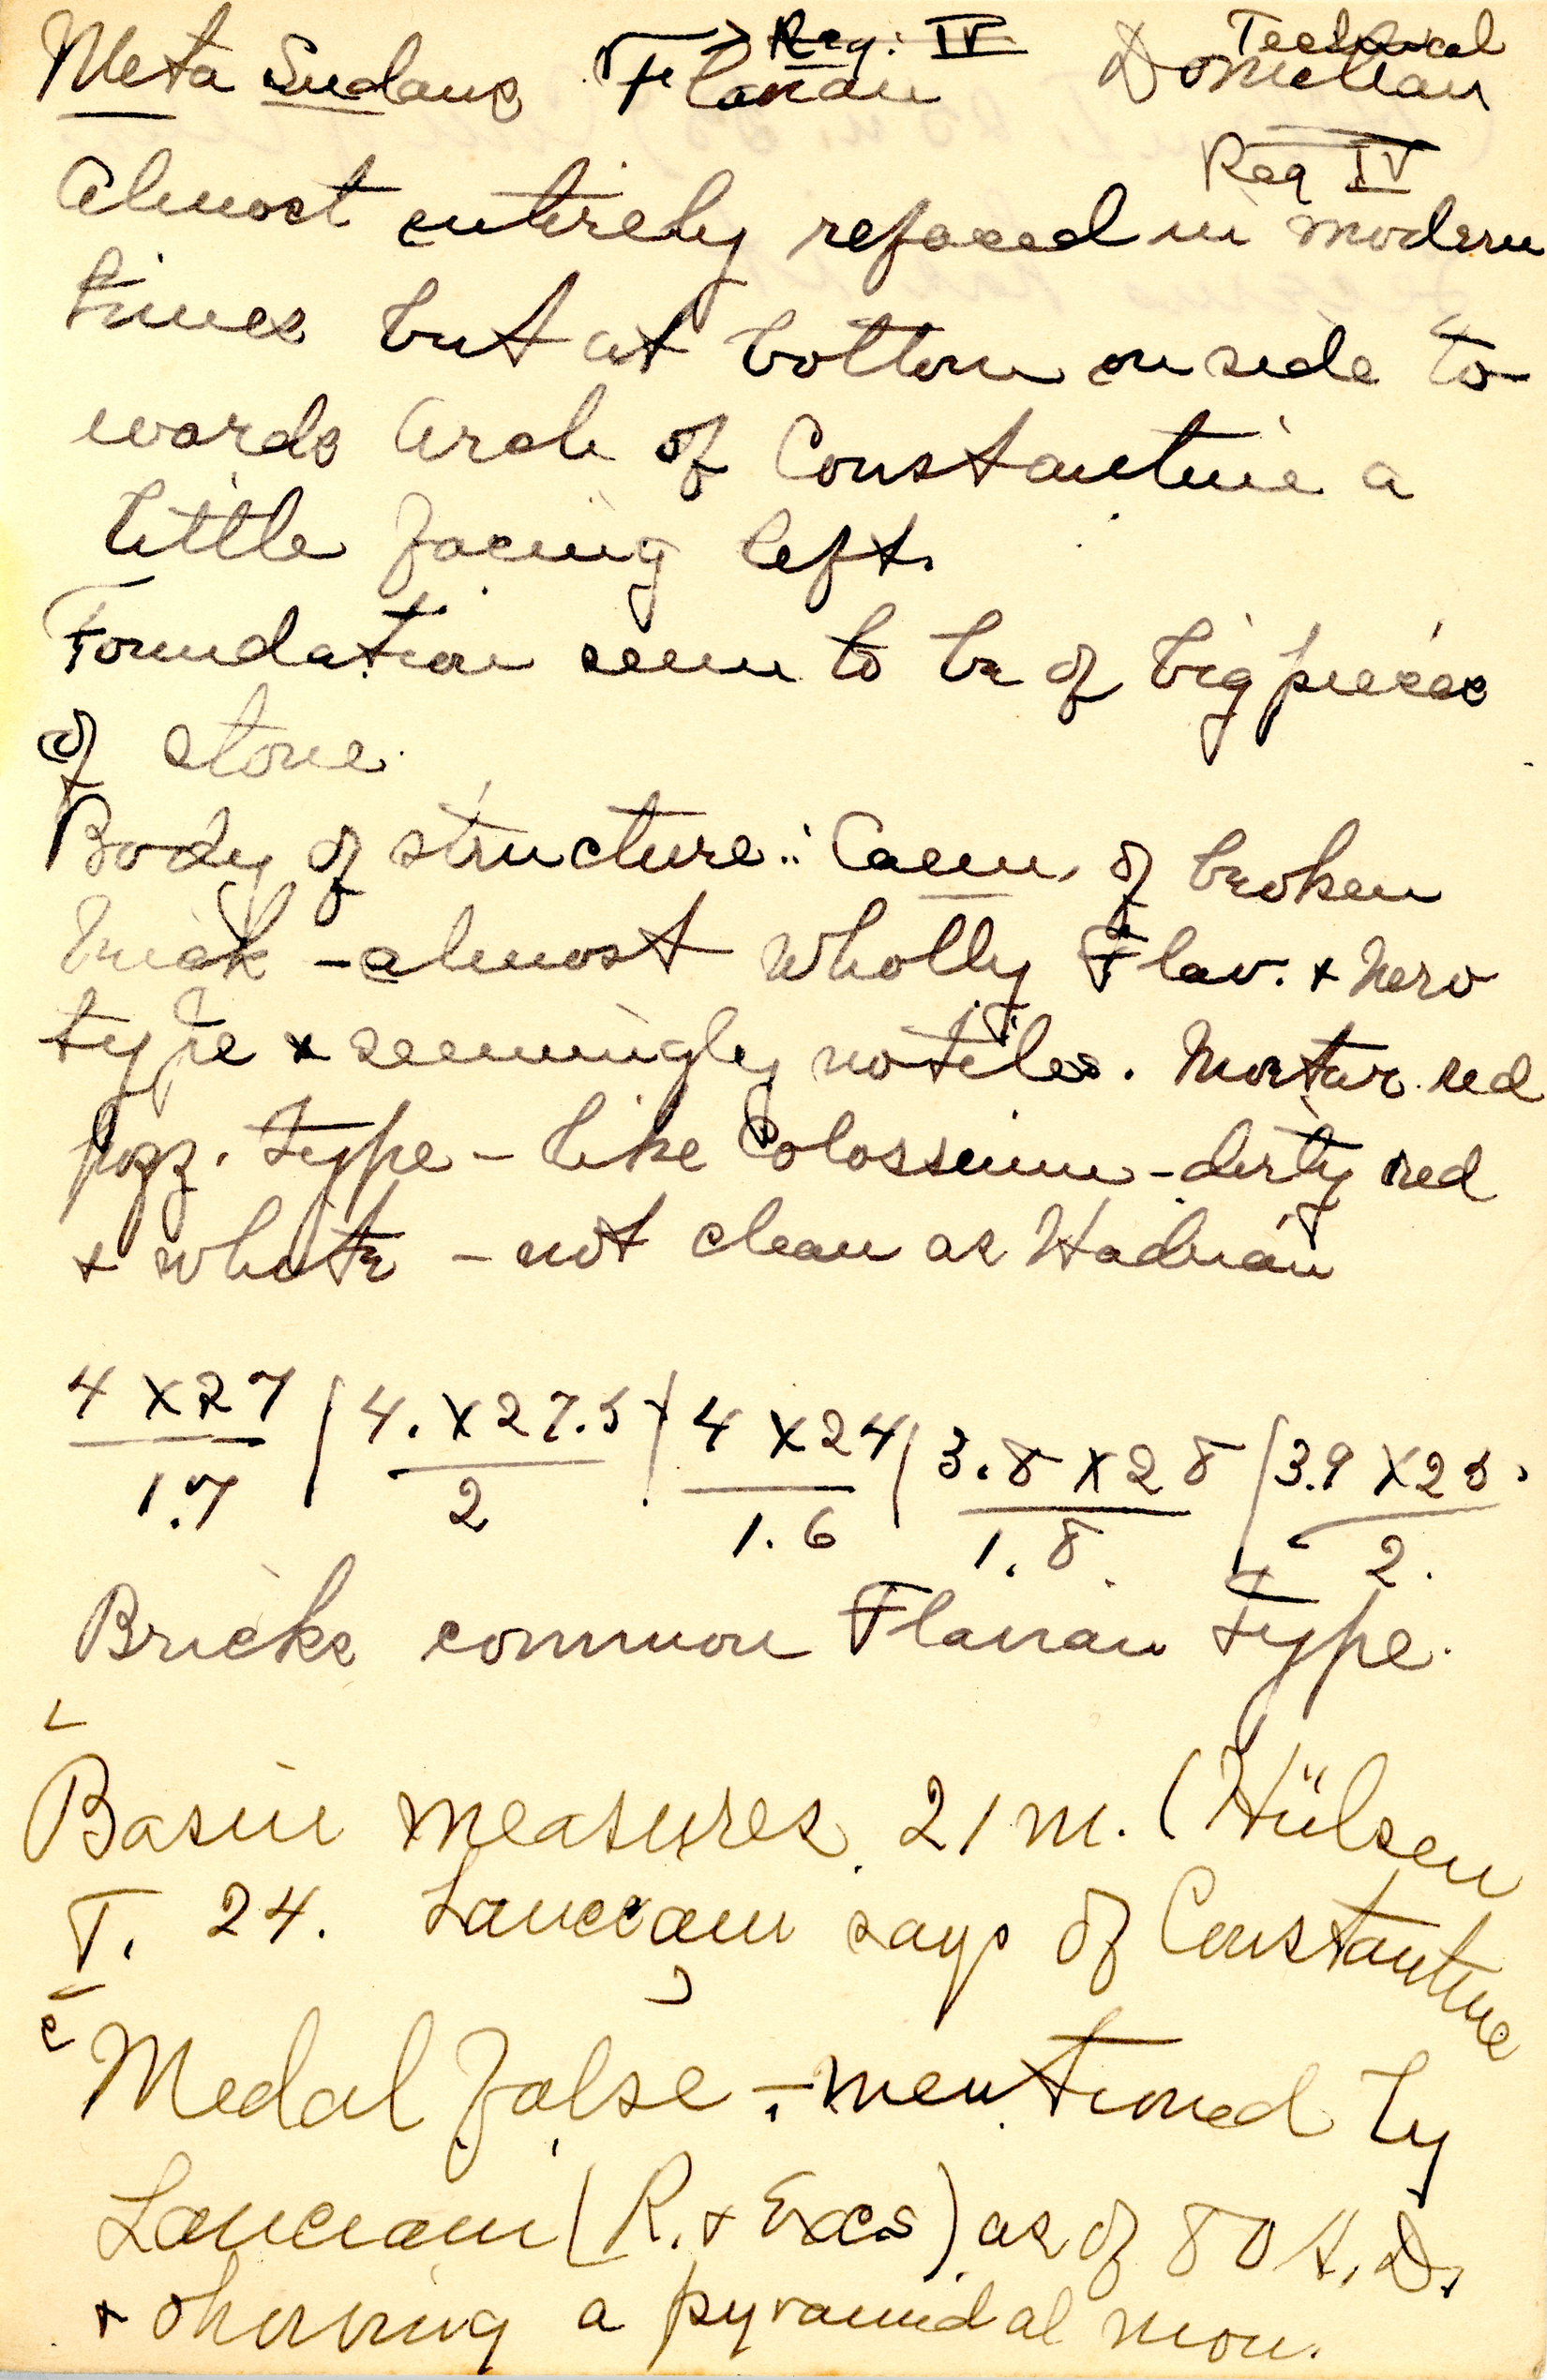 Meta Sudans Flavian Reg. IV Domitian Technical
Reg IV
Almost entirely refaced in modern
times but at bottom on side to-
wards Arch of Constantine a
little facing left.
Foundation seem to be of big pieces
of stone.
Body of structure: Caem. of broken
brick - almost wholly Flav. + Nero
type + seemingly no tiles. Mortar red
pozz. type - like Colosseum - dirty red
+ white - not clean as Hadrian
4 X 27 / 4. X 27.5 / 4 X 24 / 3.8 X 28 / 3.9 X 25.
1.7 2 1.6 1.8 2.
Bricks common Flavian type.
Basin measures 21 m. (Hülsen
T. 24. Lanciani says of Constantine
Medal false - mentioned by
Lanciani (R. + Excs) as of 80 A.D.
+ showing a pyramidal mon.